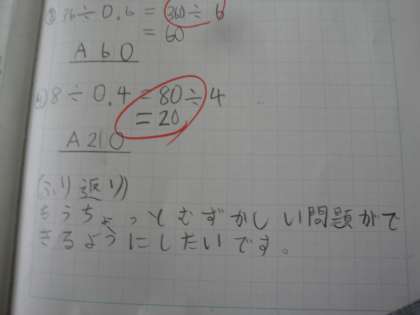 36÷0.6=360÷6
=60
A 60
8÷0.4=80÷4
=20
A 210
(ふり返り)
もうちょっとむずかしい問題がで
きるようにしたいです。